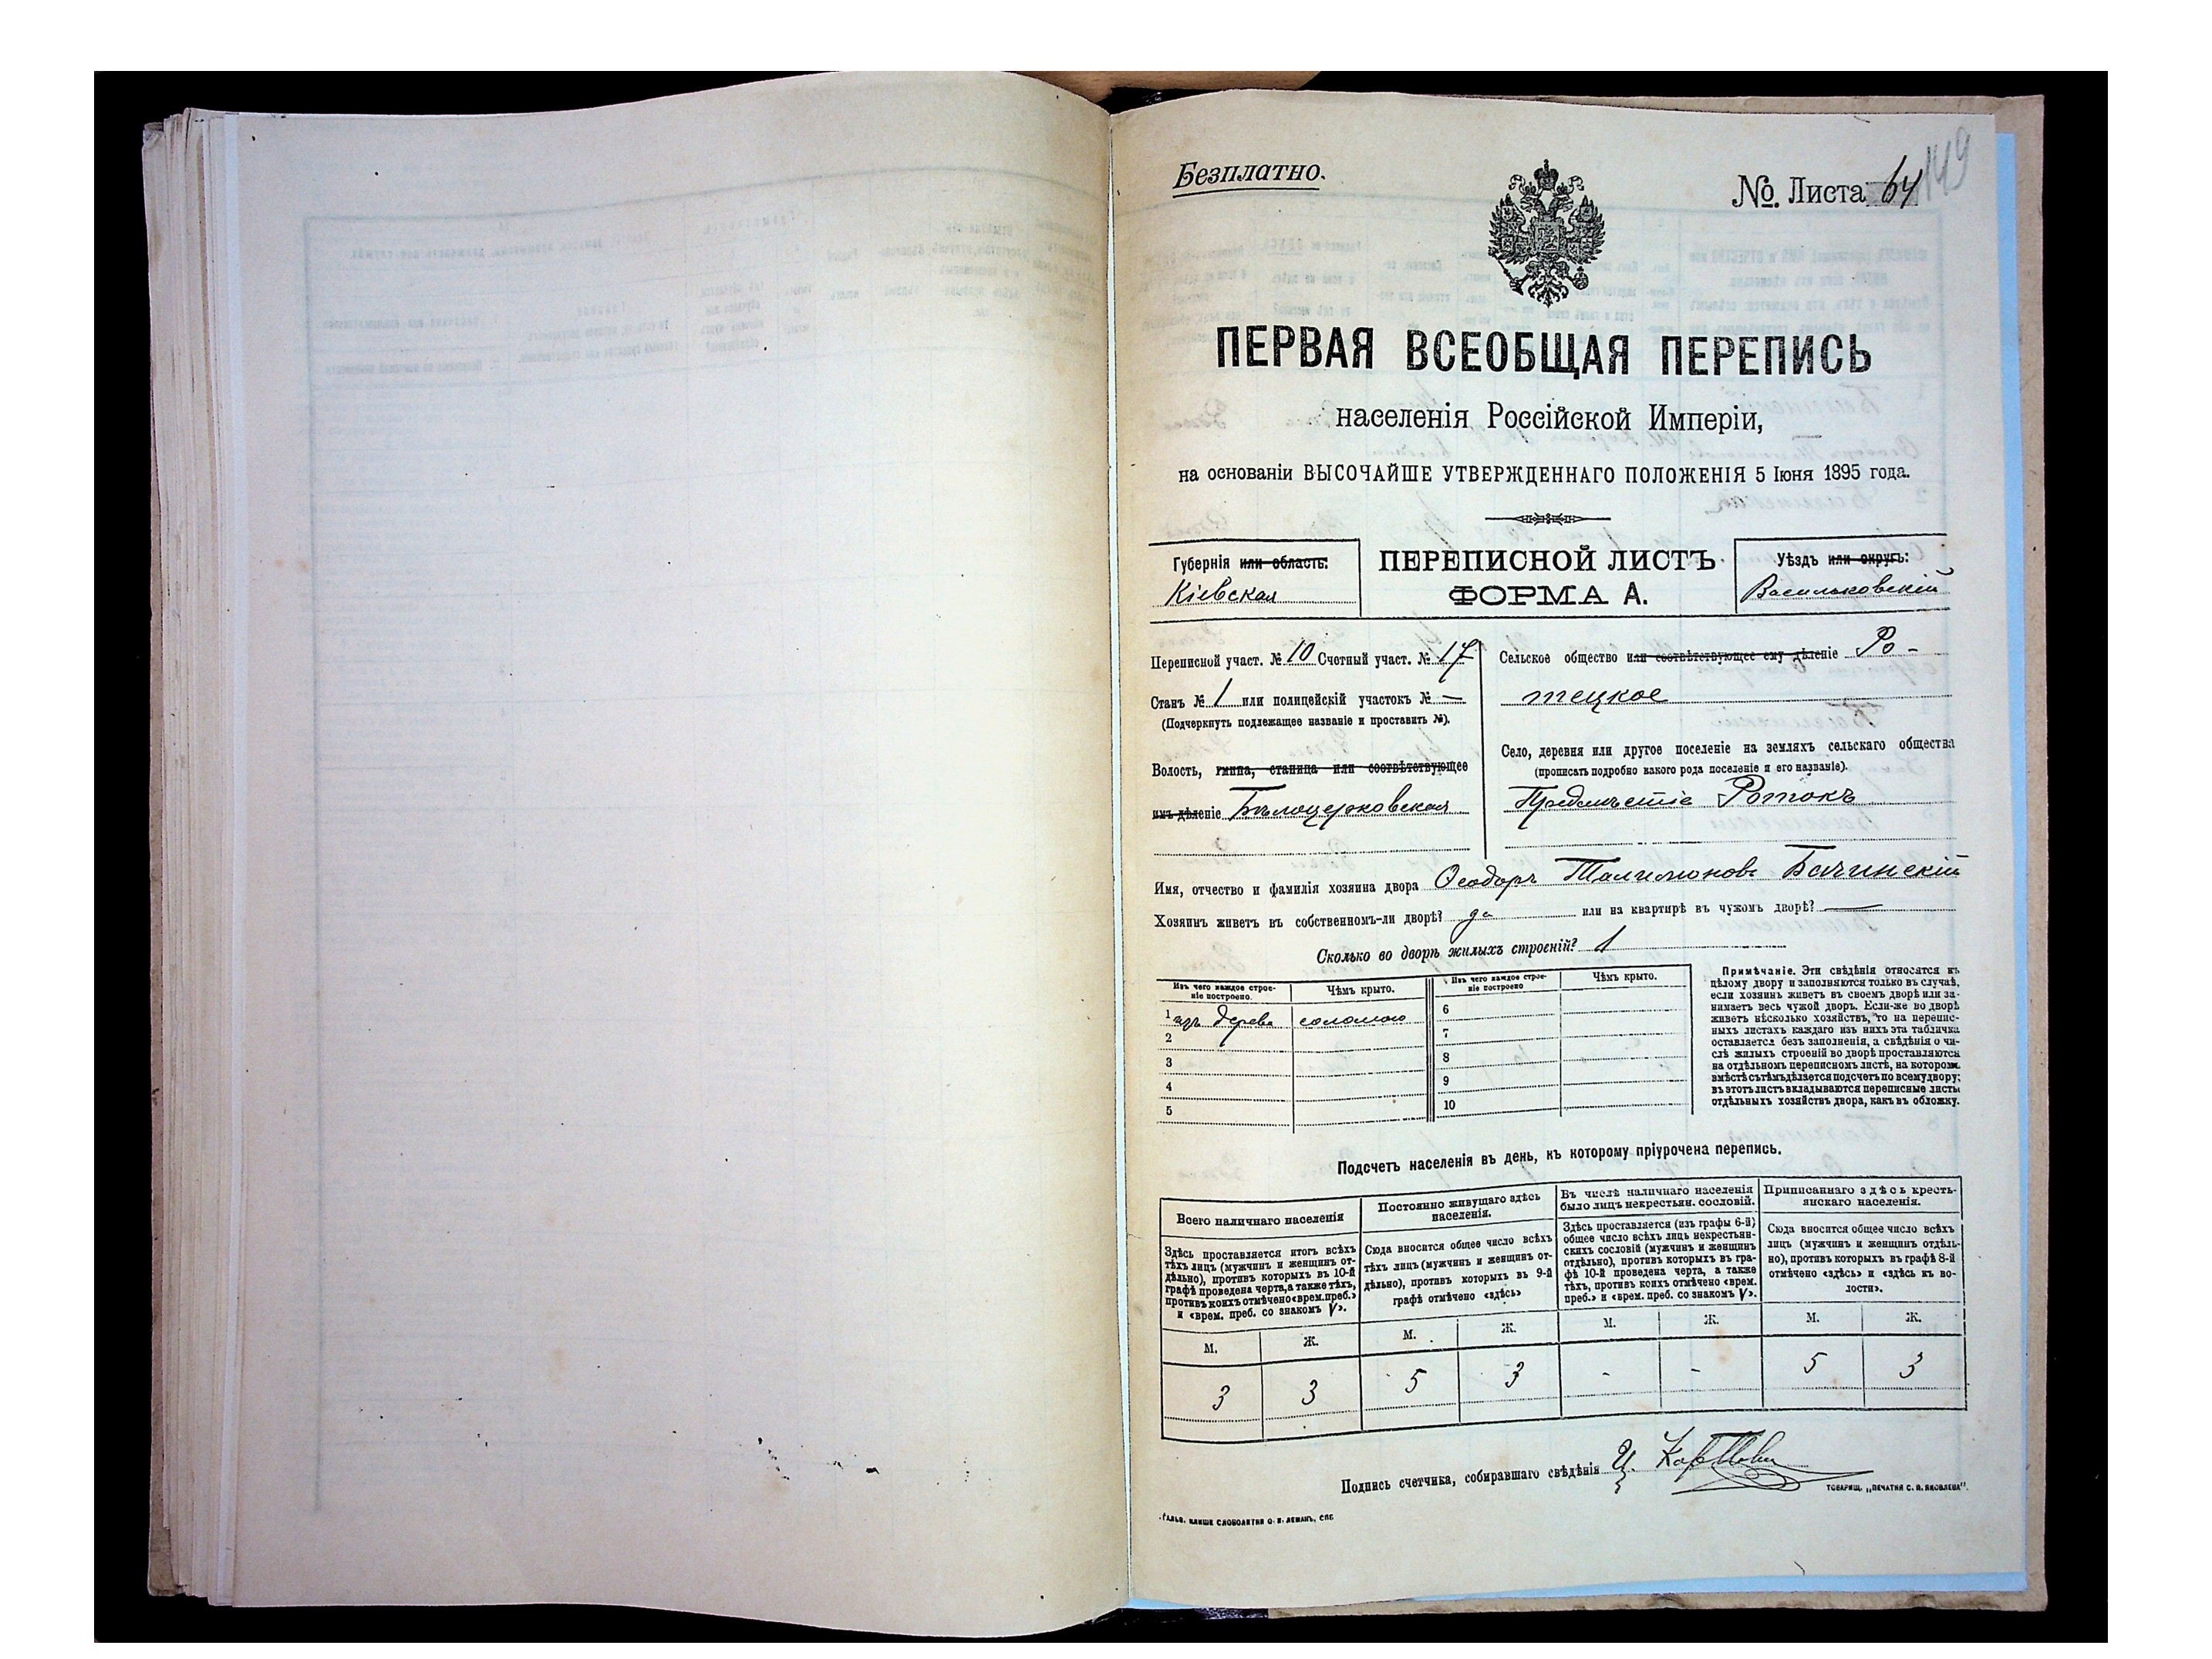 Безплатно.
№ Листа 64
149
ПЕРВАЯ ВСЕОБЩАЯ ПЕРЕПИСЬ
населенія Россійской Имперіи,
на основаніи ВЫСОЧАЙШЕ УТВЕРЖДЕННАГО ПОЛОЖЕНІЯ 5 Іюня 1895 года.
Губернія или область:
Кіевская
ПЕРЕПИСНОЙ ЛИСТЪ
ФОРМА А.
Уѣздъ или округъ:
Васильковскій
Переписной участ. № 10 Счетный участ. № 17
Станъ № 1 или полицейскій участокъ № —
(Подчеркнуть подлежащее названіе и проставить №).
Волость, гмина, станица или соотвѣтствующее
имъ дѣленіе Бѣлоцерковская
Сельское общество или соотвѣтствующее ему дѣленіе Ро-
тецкое
Село, деревня или другое поселеніе на земляхъ сельскаго общества
(прописать подробно какого рода поселеніе и его названіе).
Предмѣстіе Ротокъ
Имя, отчество и фамилія хозяина двора Ѳеодоръ Талимоновъ Бачинскій
Хозяинъ живетъ въ собственномъ-ли дворѣ? да или на квартирѣ въ чужомъ дворѣ? —
Сколько во дворѣ жилыхъ строеній? 1
Изъ чего каждое строе-
ніе построено.
Чѣмъ крыто.
Изъ чего каждое строе-
ніе построено
Чѣмъ крыто.
1 изъ дерева соломою
2
3
4
5
6
7
8
9
10
Примѣчаніе. Эти свѣдѣнія относятся къ
цѣлому двору и заполняются только въ случаѣ,
если хозяинъ живетъ въ своемъ дворѣ или за-
нимаетъ весь чужой дворъ. Если-же во дворѣ
живетъ нѣсколько хозяйствъ, то на перепис-
ныхъ листахъ каждаго изъ нихъ эта табличка
оставляется безъ заполненія, а свѣдѣнія о чи-
слѣ жилыхъ строеній во дворѣ проставляются
на отдѣльномъ переписномъ листѣ, на которомъ
вмѣстѣ съ тѣмъ дѣлается подсчетъ по всему двору;
въ этотъ листъ вкладываются переписные листы
отдѣльныхъ хозяйствъ двора, какъ въ обложку.
Подсчетъ населенія въ день, къ которому пріурочена перепись.
Всего наличнаго населенія
Здѣсь проставляется итогъ всѣхъ
тѣхъ лицъ (мужчинъ и женщинъ от-
дѣльно), противъ которыхъ въ 10-й
графѣ проведена черта, а также тѣхъ,
противъ коихъ отмѣчено «врем. преб.»
и «врем. преб. со знакомъ V».
Постоянно живущаго здѣсь
населенія.
Сюда вносится общее число всѣхъ
тѣхъ лицъ (мужчинъ и женщинъ от-
дѣльно), противъ которыхъ въ 9-й
графѣ отмѣчено «здѣсь»
Въ числѣ наличнаго населенія
было лицъ некрестьян. сословій.
Здѣсь проставляется (изъ графы 6-й)
общее число всѣхъ лицъ некрестьян-
скихъ сословій (мужчинъ и женщинъ
отдѣльно), противъ которыхъ въ гра-
фѣ 10-й проведена черта, а также
тѣхъ, противъ коихъ отмѣчено «врем.
преб.» и «врем. преб. со знакомъ V».
Приписаннаго здѣсь кресть-
янскаго населенія.
Сюда вносится общее число всѣхъ
лицъ (мужчинъ и женщинъ отдѣль-
но), противъ которыхъ въ графѣ 8-й
отмѣчено «здѣсь» и «здѣсь къ во-
лости».
М. Ж. М. Ж. М. Ж. М. Ж.
3 3 5 3 - - 5 3
Подпись счетчика, собиравшаго свѣдѣнія
ТОВАРИЩ. „ПЕЧАТНЯ С. П. ЯКОВЛЕВА“.
ГАЛЬВ. КЛИШЕ СЛОВОЛИТНИ О. И. ЛЕМАНЪ, СПБ